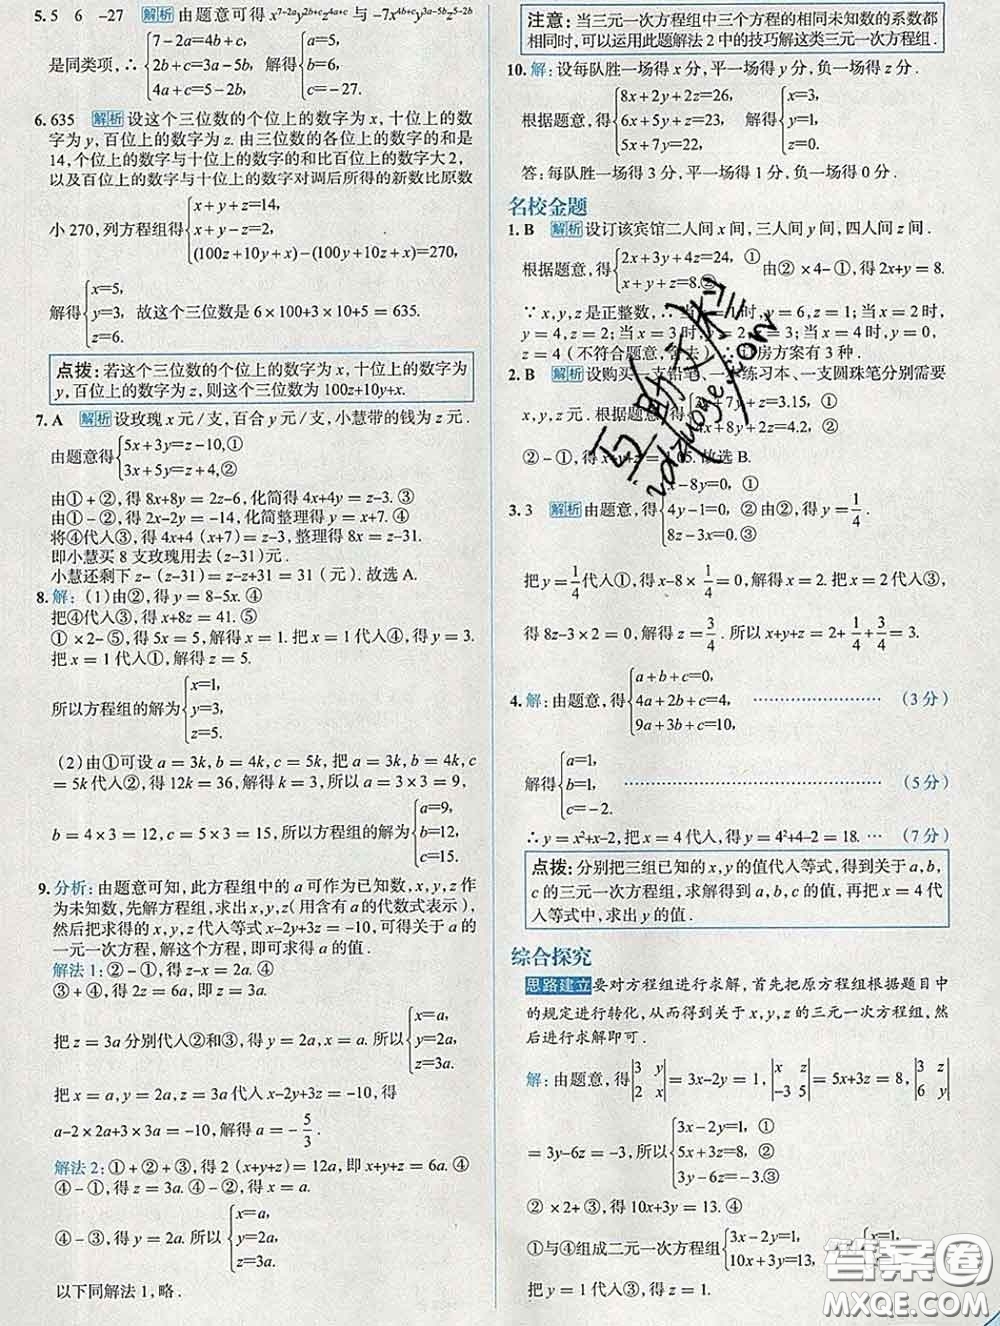 5. 5 6 -27 解析 由题意可得 x^{7-2a}y^{2b+c}z^{4a+c} 与 -7x^{4b+c}y^{3a-5b}z^{5-2b}
是同类项,∴ {7-2a=4b+c, 2b+c=3a-5b, 4a+c=5-2b 解得 {a=5, b=6, c=-27.
6. 635 解析 设这个三位数的个位上的数字为 x,十位上的数
字为 y,百位上的数字为 z. 由三位数的各位上的数字的和是
14,个位上的数字与十位上的数字的和比百位上的数字大2,
以及百位上的数字与十位上的数字对调后所得的新数比原数
小 270,列方程组得 {x+y+z=14, x+y-z=2, (100z+10y+x)-(100y+10z+x)=270,
解得 {x=5, y=3, z=6. 故这个三位数是 6×100+3×10+5=635.
点拨:若这个三位数的个位上的数字为 x,十位上的数字为
y,百位上的数字为 z,则这个三位数为 100z+10y+x.
7. A 解析 设玫瑰 x 元/支,百合 y 元/支,小慧带的钱为 z 元.
由题意得 {5x+3y=z-10,① 3x+5y=z+4,②
由①+②,得 8x+8y=2z-6,化简得 4x+4y=z-3. ③
由①-②,得 2x-2y=-14,化简整理得 x=y+7. ④
将④代入③,得 4x+4 (x+7)=z-3,整理得 8x=z-31.
即小慧买 8 支玫瑰用去 (z-31)元.
小慧还剩下 z-(z-31)=z-z+31=31 (元). 故选 A.
8. 解:(1)由②,得 y=8-5x. ④
把④代入③,得 x+8z=41. ⑤
①×2-⑤,得 5x=5,解得 x=1. 把 x=1代入④,得 y=3.
把 x=1 代入①,解得 z=5.
所以方程组的解为 {x=1, y=3, z=5.
(2)由①可设 a=3k, b=4k, c=5k,把 a=3k, b=4k,
c=5k 代入②,得 12k=36,解得 k=3,所以 a=3×3=9,
b=4×3=12, c=5×3=15,所以方程组的解为 {a=9, b=12, c=15.
9. 分析:由题意可知,此方程组中的 a 可作为已知数,x,y,z作
为未知数,先解方程组,求出 x,y,z(用含有 a 的代数式表示),
然后把求得的 x,y,z 代入等式 x-2y+3z=-10,可得关于 a 的
一元一次方程,解这个方程,即可求得 a 的值.
解法 1:②-①,得 z-x=2a. ④
③+④,得 2z=6a,即 z=3a.
把 z=3a 分别代入②和③,得 y=2a, x=a. 所以 {x=a, y=2a, z=3a.
把 x=a, y=2a, z=3a 代入 x-2y+3z=-10,得
a-2×2a+3×3a=-10,解得 a=-5/3.
解法 2:①+②+③,得 2 (x+y+z)=12a,即 x+y+z=6a. ④
④-①,得 z=3a. ④-②,得 x=a.
④-③,得 y=2a. 所以 {x=a, y=2a, z=3a.
以下同解法 1,略.
注意:当三元一次方程组中三个方程的相同未知数的系数都
相同时,可以运用此题解法 2 中的技巧解这类三元一次方程组.
10. 解:设每队胜一场得 x 分,平一场得 y 分,负一场得 z 分.
根据题意,得 {8x+2y+2z=26, 6x+5y+z=23, 5x+7y=22 解得 {x=3, y=1, z=0.
答:每队胜一场得 3 分,平一场得 1 分,负一场得 0 分.
名校金题
1. B 解析 设订该宾馆二人间 x 间,三人间 y 间,四人间 z 间.
根据题意,得 {2x+3y+4z=24, ① x+y+z=8.② 由②×4-①,得 2x+y=8.
∵ x,y,z 是正整数,∴ 当 x=1时,
y=4, z=2;当 x=3 时, z=3;当 x=4 时, y=0,
z=4(不符合题意,舍去) 房方案有 3 种.
2. B 解析 设购买一支铅笔、一 练习本、一支圆珠笔分别需要
x,y,z 元. 根据题意,得 +7y+z=3.15, ① 4x+8y+2z=4.2, ②
②-①,得 x+y+z=1.05. 故选 B.
3. 3 解析 由题意,得 {x-8y=0, ① 4y-1=0, ② 8z-3x=0, ③ 由②,得 y=1/4.
把 y=1/4 代入①,得 x-8×1/4=0,解得 x=2. 把 x=2 代入③,
得 8z-3×2=0,解得 z=3/4. 所以 x+y+z=2+1/4+3/4=3.
4. 解:由题意,得 {a+b+c=0, 4a+2b+c=4, 9a+3b+c=10, ………… (3分)
解得 {a=1, b=1, c=-2. ………… (5分)
∴ y=x²+x-2,把 x=4 代入,得 y=4²+4-2=18. … (7分)
点拨:分别把三组已知的 x,y 的值代入等式,得到关于 a,b,
c 的三元一次方程组,求解得到 a,b,c 的值,再把 x=4 代
入等式中,求出 y 的值.
综合探究
思路建立 要对方程组进行求解,首先把原方程组根据题目中
的规定进行转化,从而得到关于 x,y,z 的三元一次方程组,然
后进行求解即可.
解:由题意,得 |3 y; 2 x|=3x-2y=1, |x z; -3 5|=5x+3z=8, |3 z; 6 y|
=3y-6z=-3,所以 {3x-2y=1, ① 5x+3z=8, ② 3y-6z=-3.③
②×2+③,得 10x+3y=13. ④
①与④组成二元一次方程组 {3x-2y=1, 10x+3y=13,
把 y=1 代入③,得 z=1.
答案圈
MXQE.COM